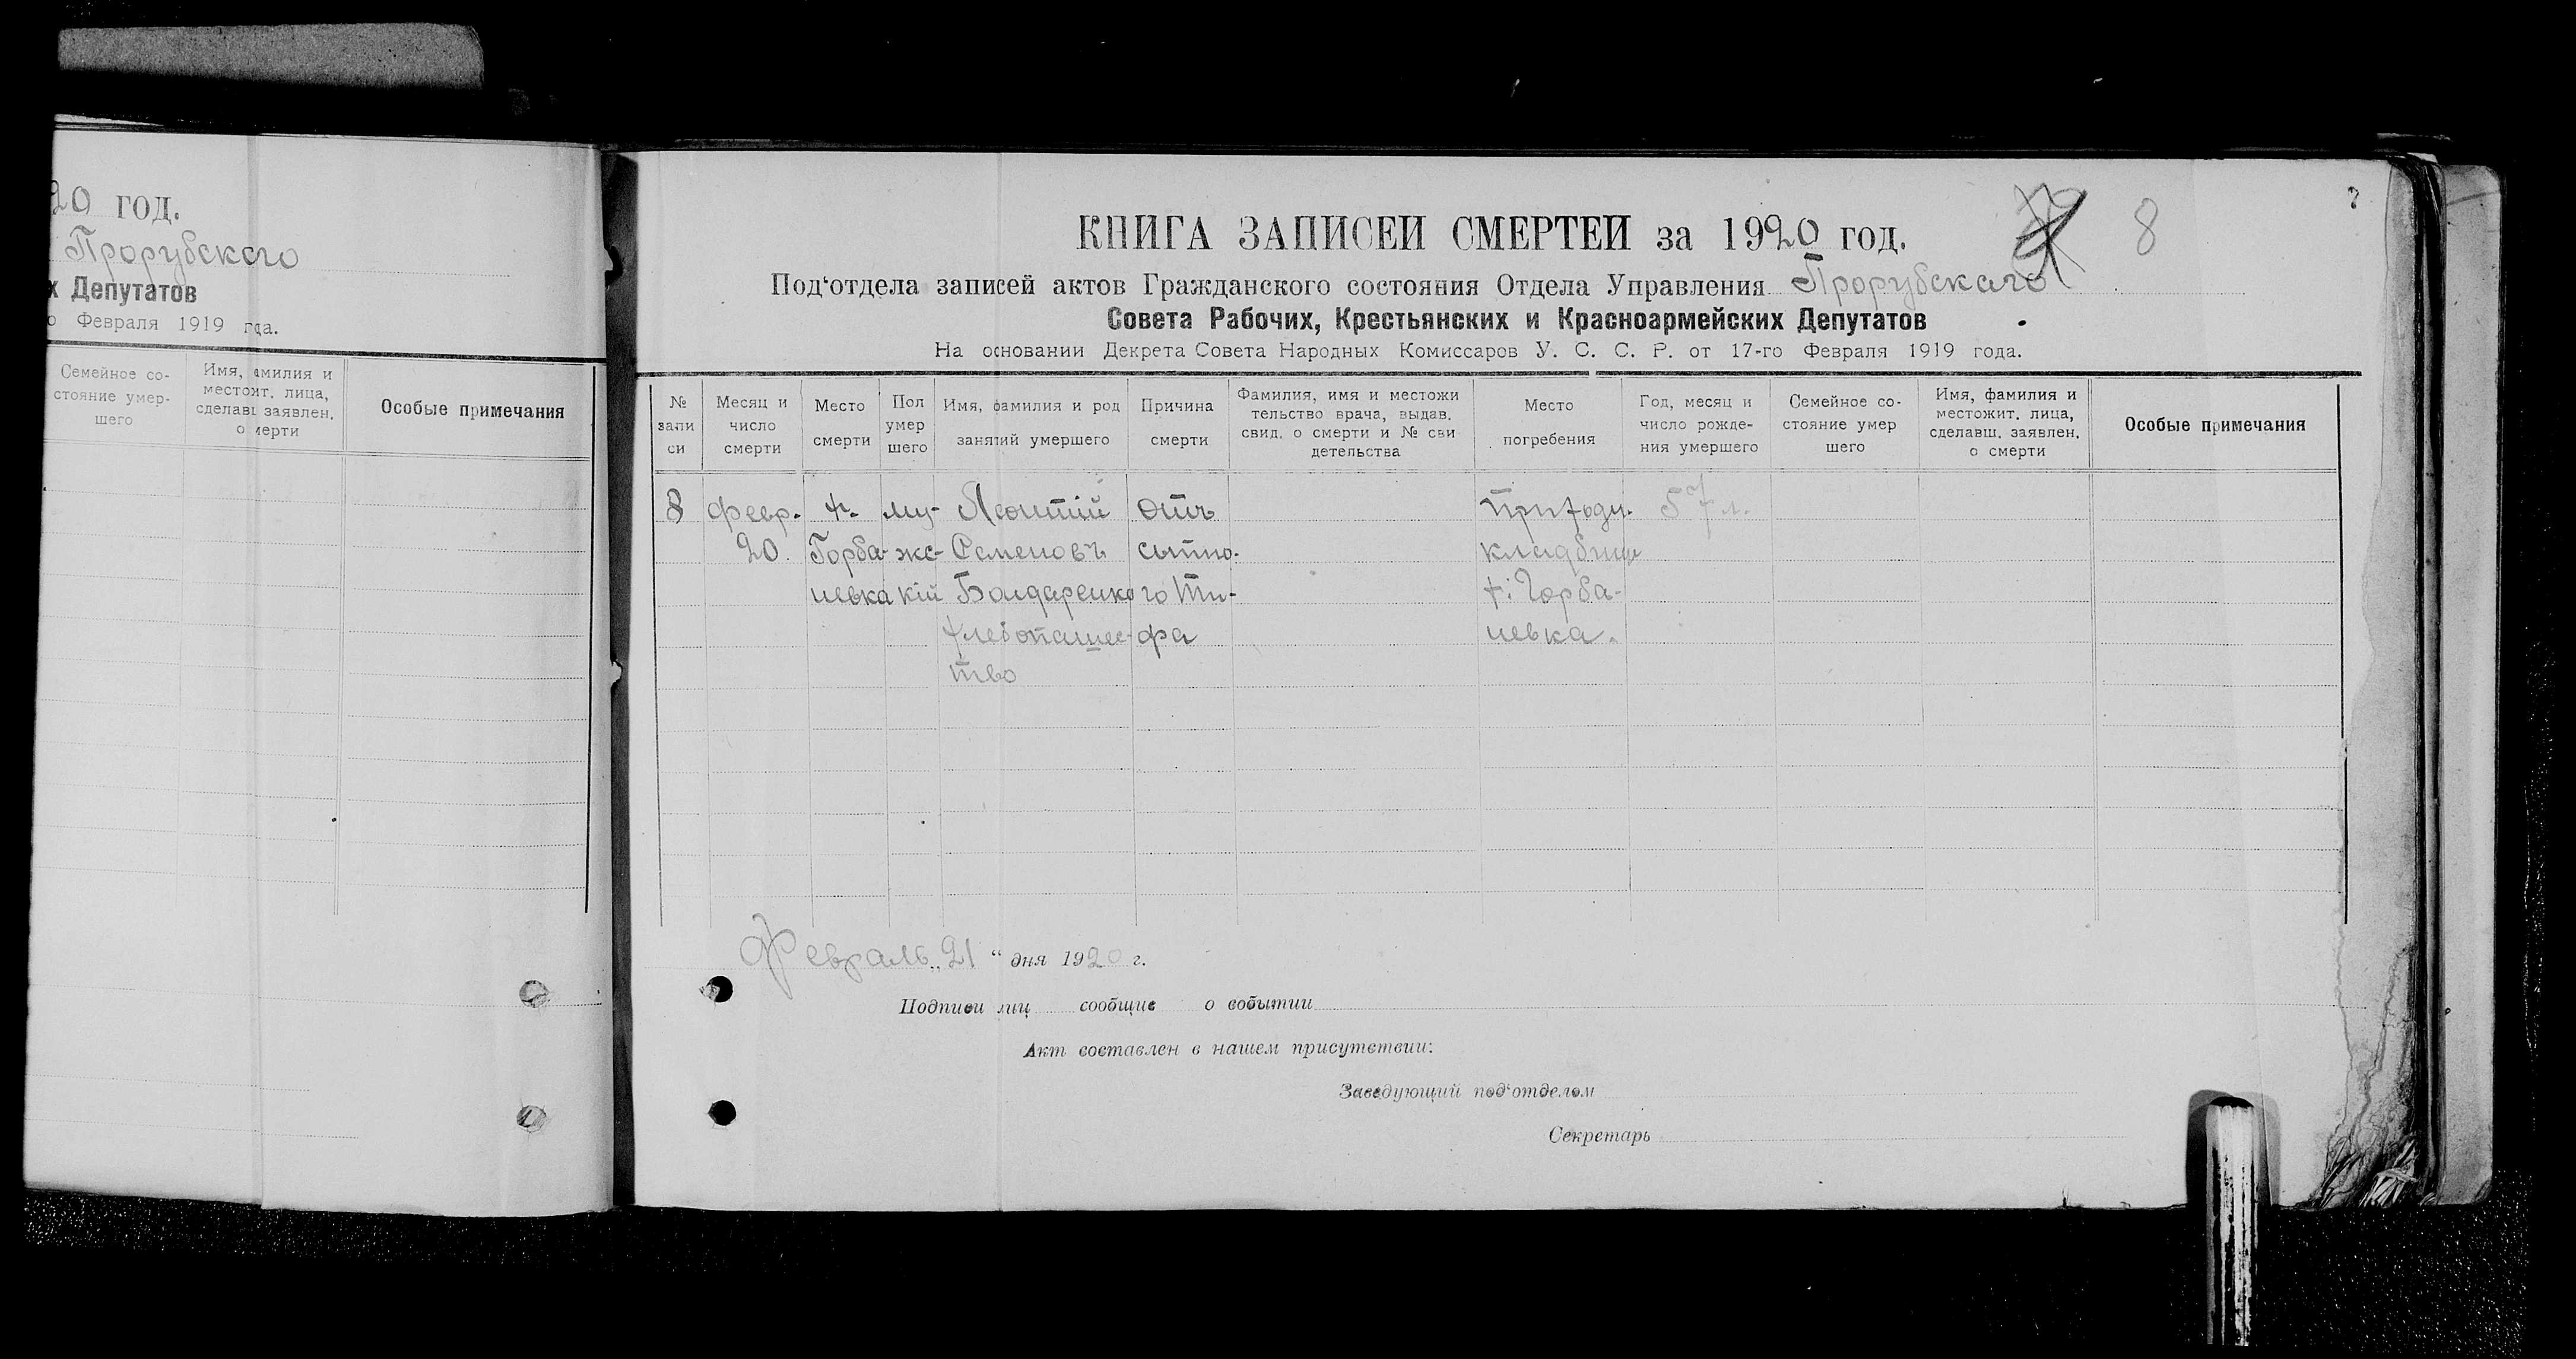 20 год.
Прорубского
х Депутатов
о Февраля 1919 года.
Семейное со-
стояние умер-
шего
Имя, фамилия и
местожит. лица,
сделавш. заявлен.
о смерти
Особые примечания
КНИГА ЗАПИСЕЙ СМЕРТЕЙ за 1920 год.
8
Под‘отдела записей актов Гражданского состояния Отдела Управления Прорубскаго
Совета Рабочих, Крестьянских и Красноармейских Депутатов
На основании Декрета Совета Народных Комиссаров У. С. С. Р. от 17-го Февраля 1919 года.
№
запи
си
Месяц и
число
смерти
Место
смерти
Пол
умер
шего
Имя, фамилия и род
занятий умершего
Причина
смерти
Фамилия, имя и местожи
тельство врача, выдав.
свид. о смерти и № сви
детельства
Место
погребения
Год, месяц и
число рожде-
ния умершего
Семейное со-
стояние умер
шего
Имя, фамилия и
местожит. лица,
сделавш. заявлен.
о смерти
Особые примечания
8
февр.
20.
х.
Горба-
невка
му-
жс-
кій
Леонтій
Семеновъ
Бондаренко
хлебопашес-
тво
отъ
сыпно-
го ти-
фа
приходи.
кладбищ
х: Горба-
невка.
57 л.
Февраль „21“ дня 1920 г.
Подписи лиц сообщив о событии
Акт составлен в нашем присутствии:
Заведующий под‘отделом
Секретарь